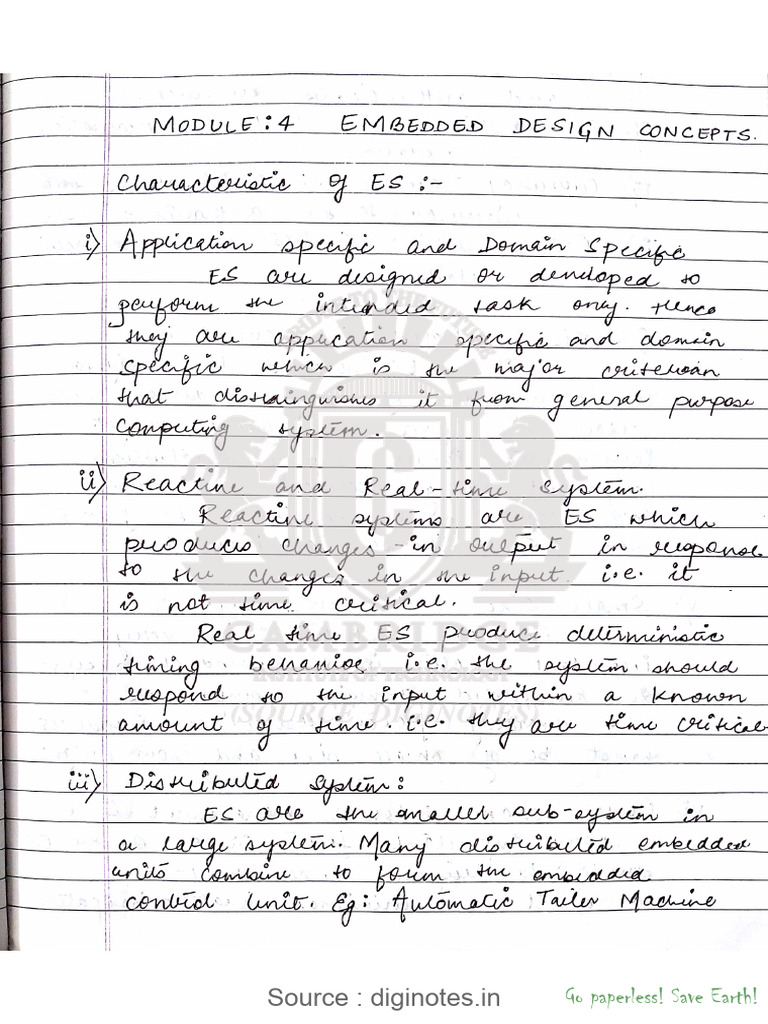 MODULE: 4 EMBEDDED DESIGN CONCEPTS.
Characteristic of ES :-
i) Application specific and Domain Specific
ES are designed or developed to
perform the intended task only. Hence
they are application specific and domain
specific which is the major criterian
that distainguishes it from general purpose
computing system.
ii) Reactine and Real-time system.
Reactine systems are ES which
produces changes in output in response
to the changes in the input i.e. it
is not time critical.
Real time ES produce deterministic
timing behavior i.e. the system should
respond to the input within a known
amount of time. i.e. they are time critical
iii) Distributed System:
ES are the smaller sub-system in
a large system. Many distributed embedded
units combine to form the embedded
control unit. Eg: Automatic Tailer Machine
CAMBRIDGE
INSTITUTE OF TECHNOLOGY
(SOURCE DIGINOTES)
Source : diginotes.in
Go paperless! Save Earth!